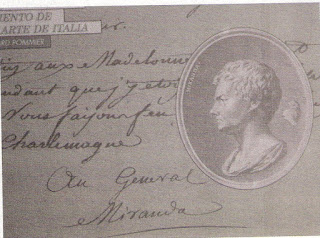 MENTO DE
ARTE DE ITALIA
ARD POMMIER
aux Madelonn
ndant que j'y
Nous faisons
Charlemagne
Au General
Miranda